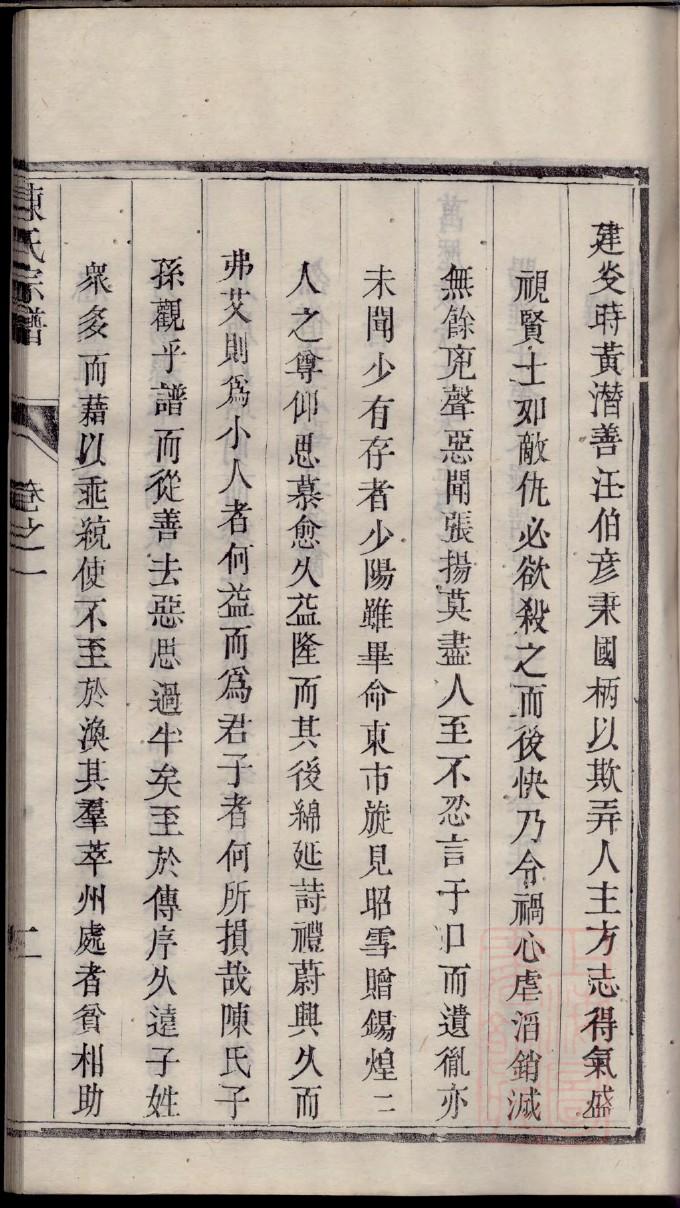 建炎時黃潛善汪伯彥秉國柄以欺弄人主方志得氣盛
視賢士如敵仇必欲殺之而後快乃令禍心虐滔銷滅
無餘兇聲惡聞張揚莫盡人至不忍言于口而遺胤亦
未聞少有存者少陽雖畢命東市旋見昭雪贈錫煌二
人之尊仰思慕愈久益隆而其後綿延詩禮蔚興久而
弗艾則爲小人者何益而爲君子者何所損哉陳氏子
孫觀乎譜而從善去惡思過半矣至於傳序久遠子姓
衆多而藉以乘統使不至於渙其羣萃州處者貧相助
陳氏宗譜
卷之一
二